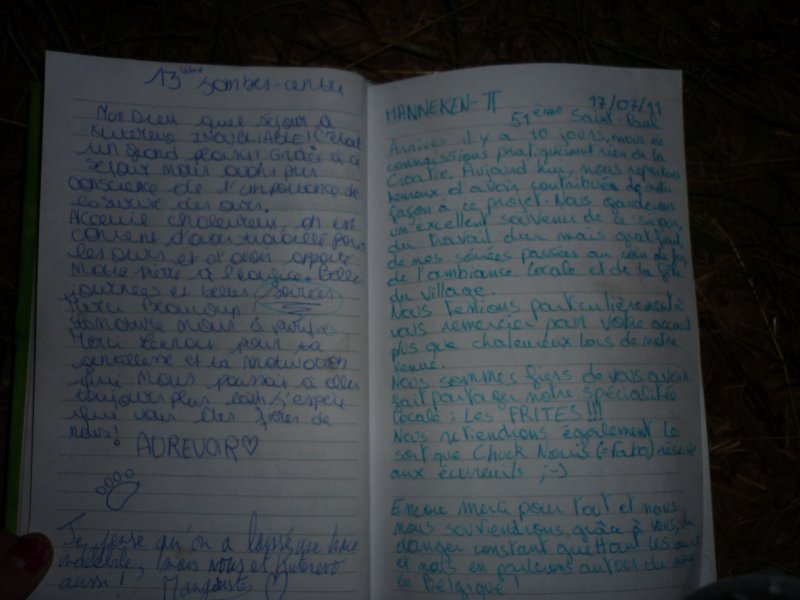 13ème Sombre-
Mon Dieu quel séjour à
Kuterevo INOUBLIABLE! C'était
un grand plaisir. Grâce à ce
séjour nous avons pris
conscience de l'importance de
la survie des ours.
Accueil chaleureux, on est
content d'avoir travaillé pour
les ours et d'avoir apporté
notre pierre à l'édifice. Belles
journées et belles soirées
Merci Beaucoup
nous à
Merci pour ta
gentillesse et la motivation
qui nous poussait à aller
toujours plus loin! J'espère
que vous êtes fières de
nous!
AUREVOIR♡
Je pense qu'on a laissé une trace
indélébile, mais vous et Kuterevo
aussi! Mangouste ♡
MANNEKEN-π 17/07/11
51ème Saint-Paul
Arrivés il y a 10 jours, nous ne
connaissions pratiquement rien de la
Croatie. Aujourd'hui, nous repartons
heureux d'avoir contribués de notre
façon à ce projet. Nous garderons
un excellent souvenir de ce séjour,
du travail dur mais gratifiant,
de nos soirées passées au coin du feu,
de l'ambiance locale et de la fête
du village.
Nous tenions particulièrement à
vous remercier pour votre accueil
plus que chaleureux lors de notre
venue.
Nous sommes fiers de vous avoir
fait partager notre spécialité
locale : Les FRITES !!!
Nous retiendrons également le
sort que Chuck Norris (= ) réserve
aux écureuils ;-)
Encore merci pour tout et nous
nous souviendrons, grâce à vous, du
danger constant guettant les ours
et nous en parlerons autour de nous
en Belgique!